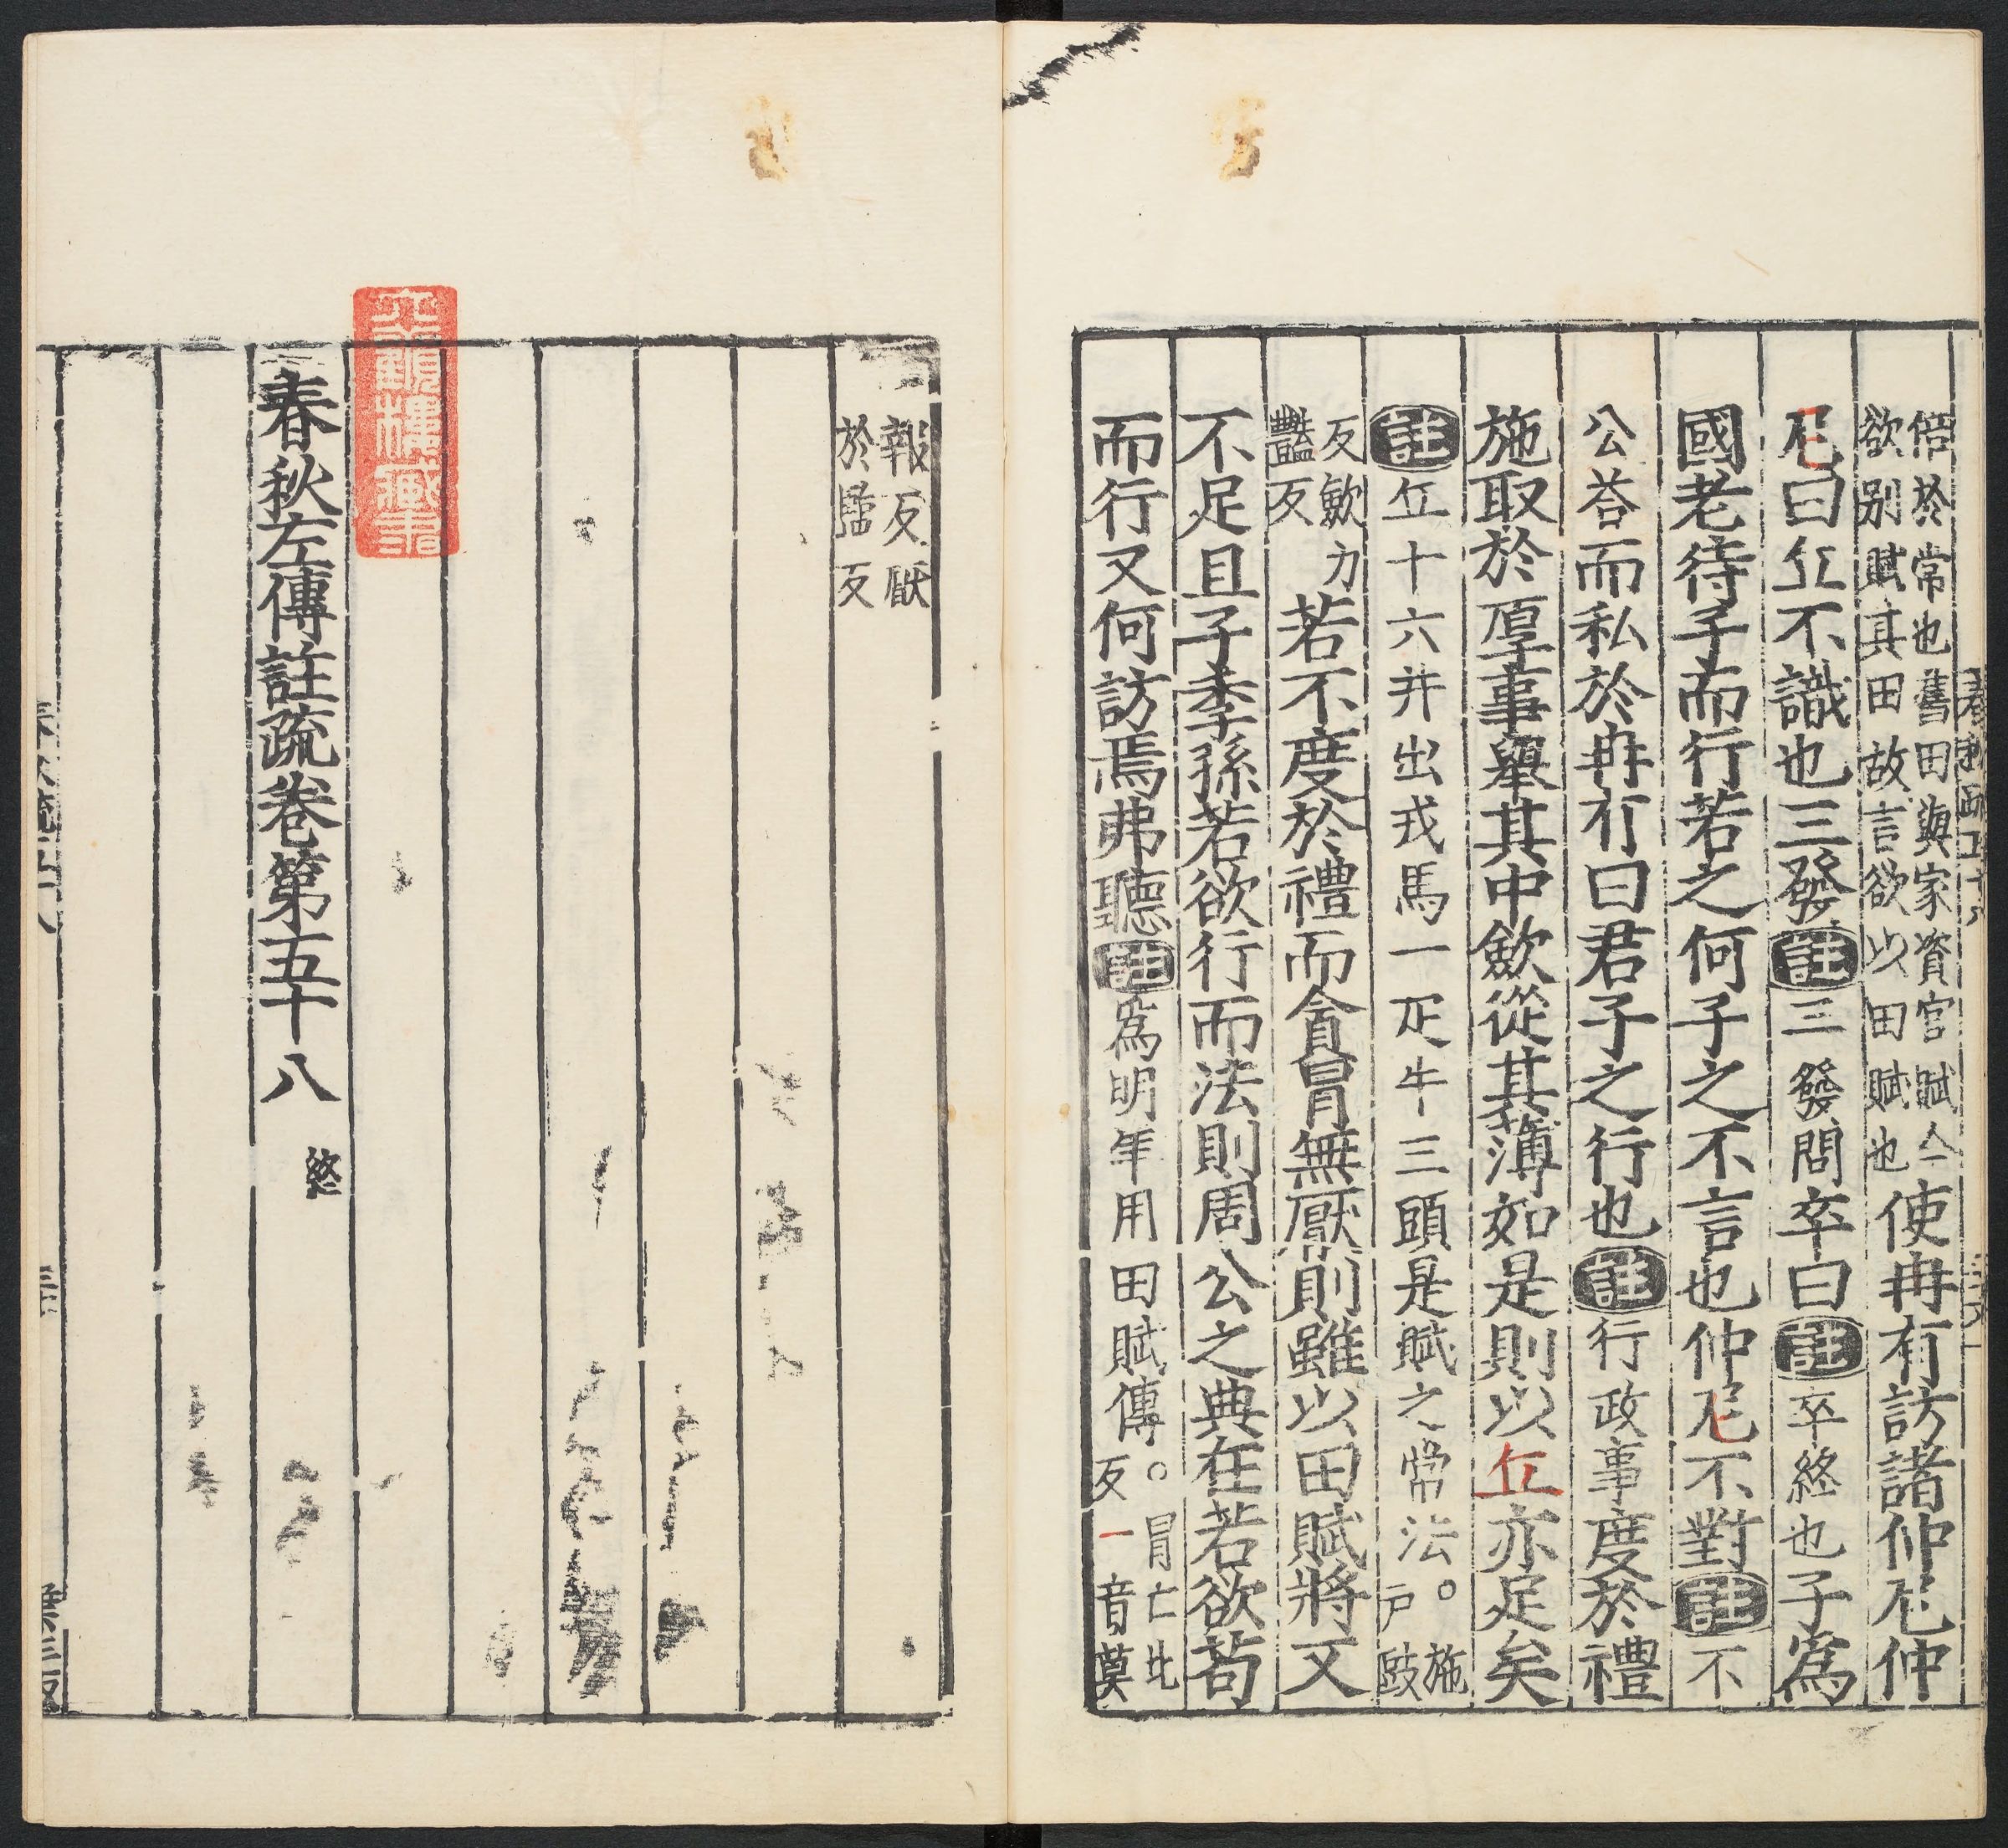 倍於常也舊田與家資官賦今
欲别賦其田故言欲以田賦也
使冉有訪諸仲尼仲
尼曰丘不識也三發註三發問卒曰註卒終也子爲
國老待子而行若之何子之不言也仲尼不對註不
公荅而私於冉有曰君子之行也註行政事度於禮
施取於厚事舉其中斂從其薄如是則以丘亦足矣
註丘十六井出戎馬一疋牛三頭是賦之常法。施户豉
反斂力豔反若不度於禮而貪冒無厭則雖以田賦將又
不足且子季孫若欲行而法則周公之典在若欲苟
而行又何訪焉弗聽註爲明年用田賦傳。冒亡北反一音莫
報反厭
於鹽反
春秋左傳註疏卷第五十八 終